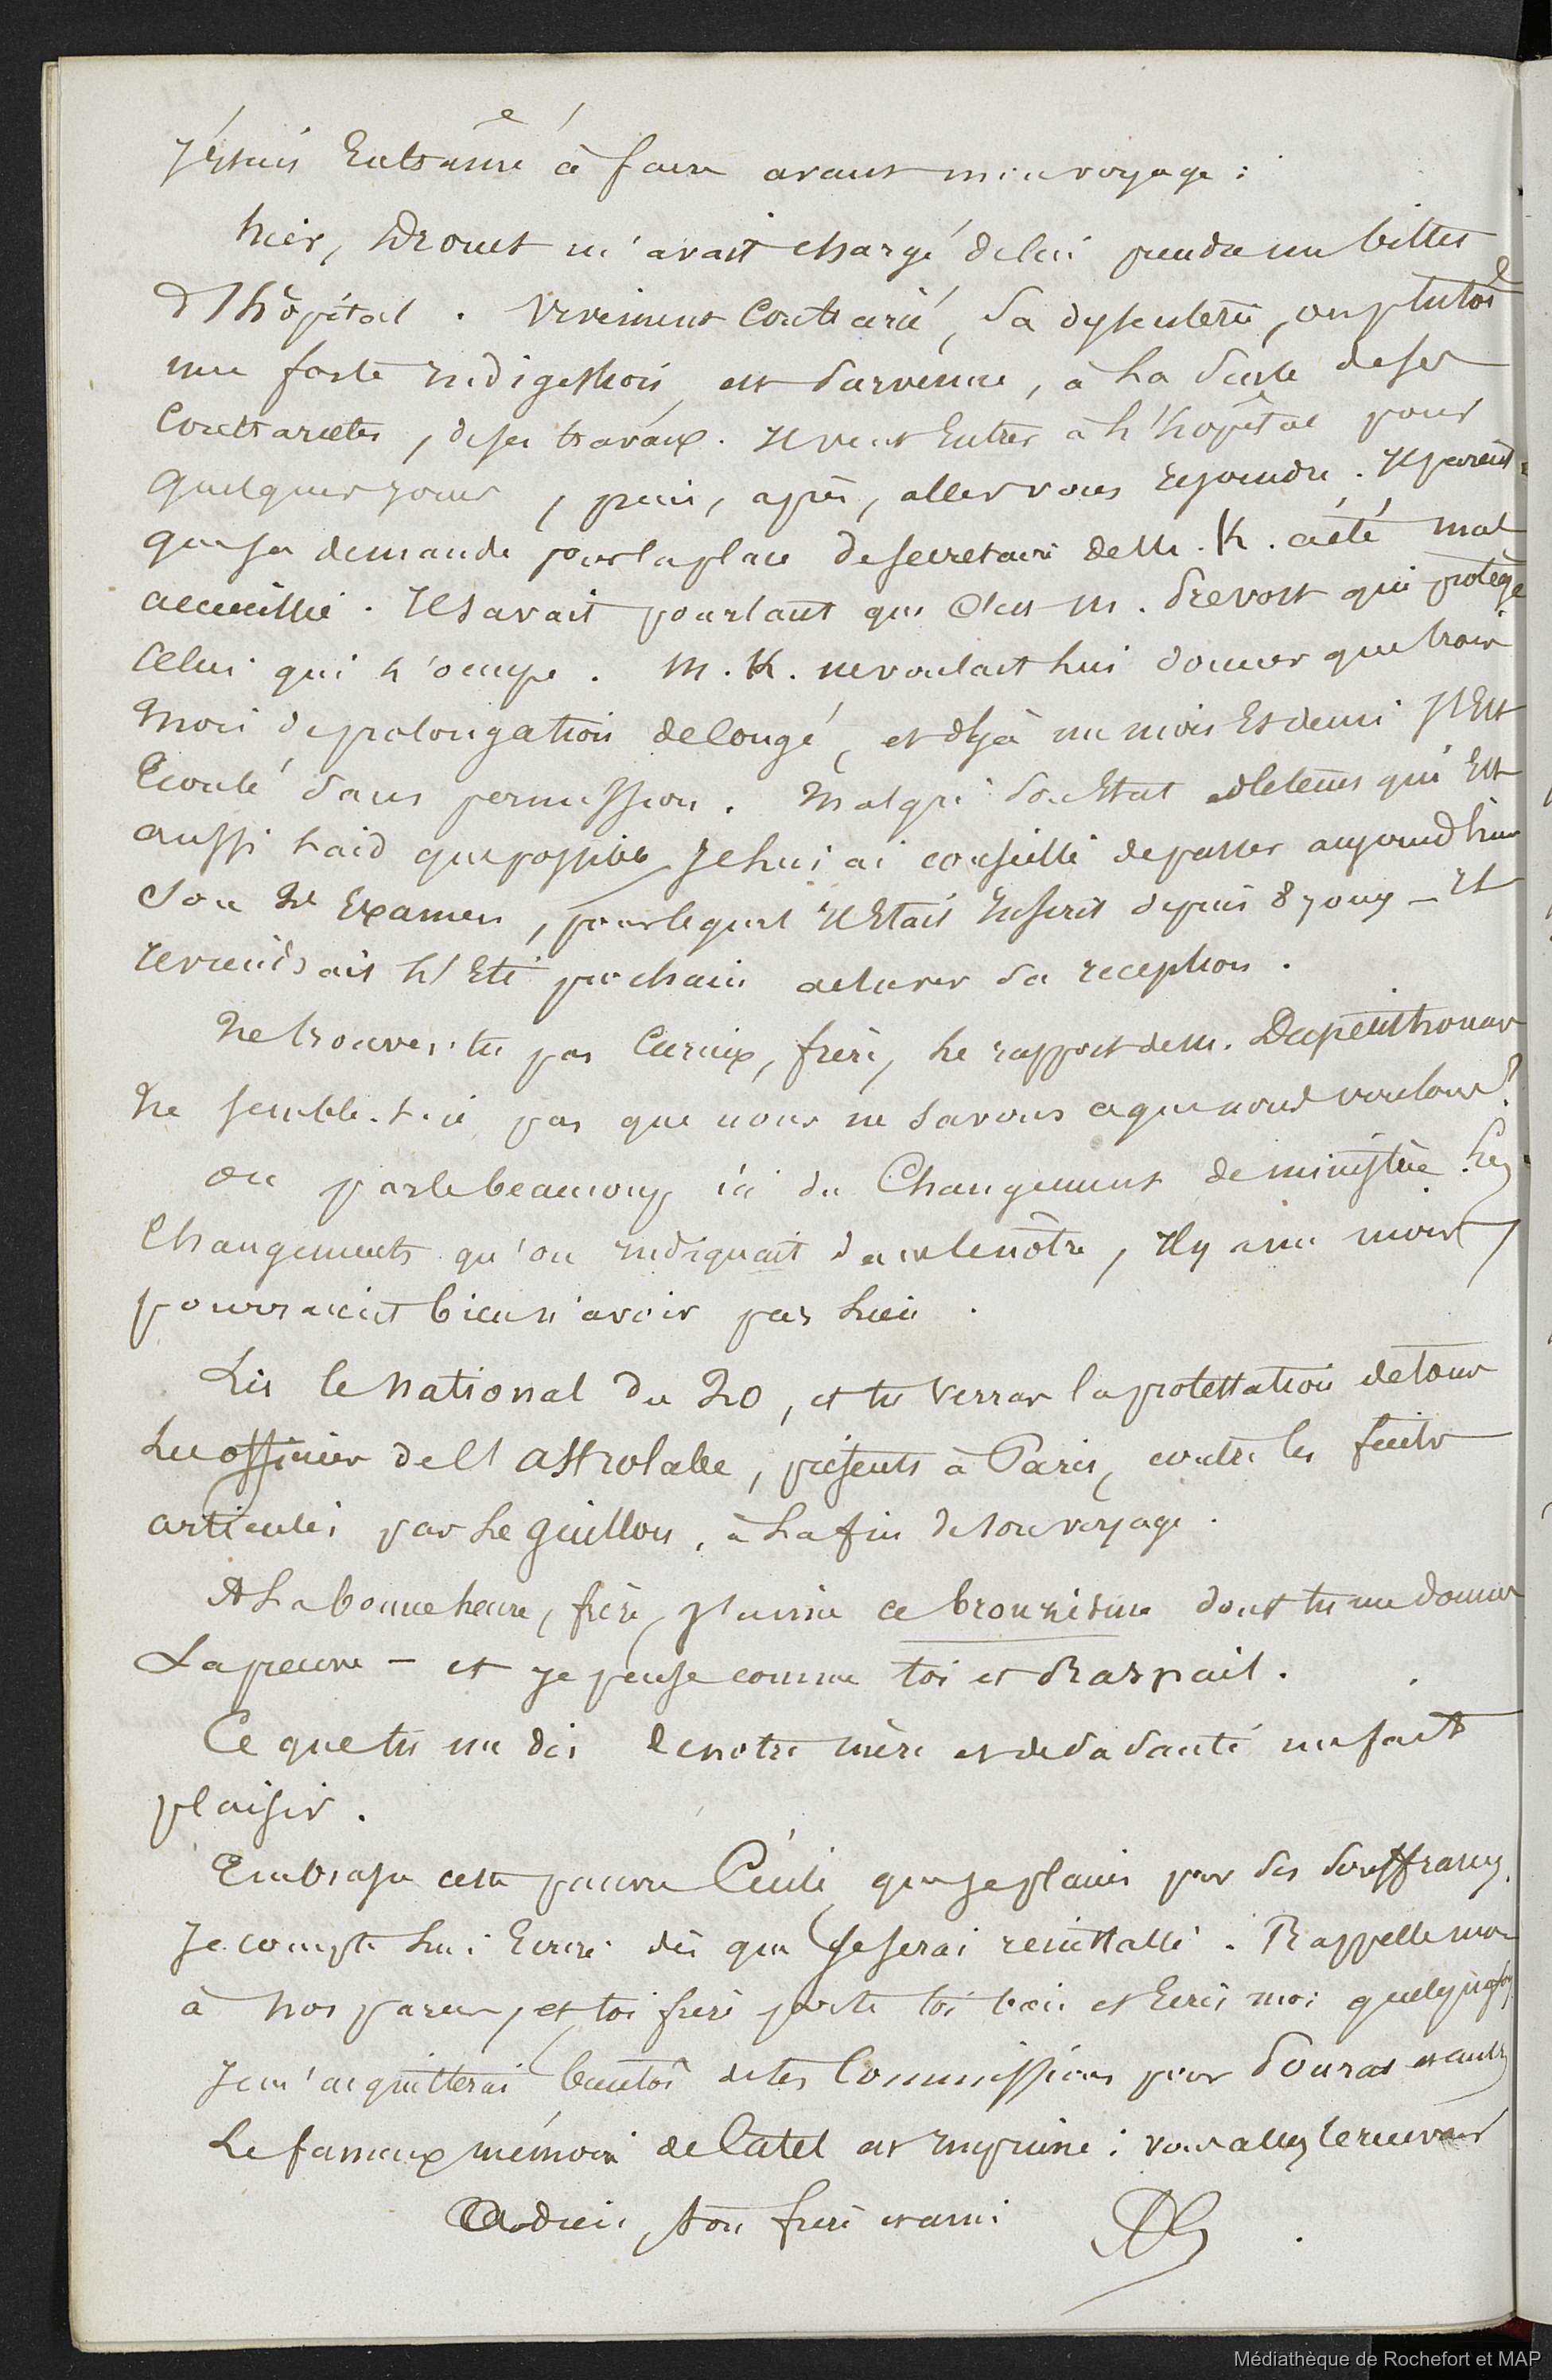 j'étais entrainé à faire avant mon voyage :
hier, Drouet m'avait chargé de lui prendre un billet
d'hôpital. Vivement contrarié, sa dysenterie, ou plutôt
une forte indigestion, est survenue, à la suite de ses
contrariétés, de ses travaux. Il veut entrer à l'hôpital pour
quelques jours, puis, après, aller vous rejoindre. Il parait
que sa demande pour la place de secretaire de M. K. a été mal
accueillie. Il savait pourtant que c'est M. Prevost qui protège
celui qui l'occupe. M. K. ne voulait lui donner que trois
mois de prolongation de congé, et déjà un mois et demi s'est
écoulé sans permission. Malgré son état qui est
aussi laid que possible, je lui ai conseillé de passer aujourd'hui
son 2e examen, pour lequel il était inscrit depuis 8 jours – et
reviendrait l'été prochain achever sa reception.
Ne trouves-tu pas curieux, frère, le rapport de M. Dupetithouars
ne semble-t-il pas que nous ne savons ce que nous voulons ?
on parle beaucoup ici du changement de ministère. Les
changements qu'on indiquait dans le nôtre, il y a un mois,
pourraient bien n'avoir pas lieu.
Lis le national du 20, et tu verras la protestation de tous
les officiers de l'astrolabe, présents à Paris, contre les faits
articulés par Le guillou, à la fin de son voyage.
A la bonne heure, frère, j'aime ce brounisme dont tu me donnes
la preuve – et je pense comme toi et Raspail.
Ce que tu me dis de notre mère et de sa santé me fait
plaisir.
Embrasse cette pauvre Cécile que je plains pour ses souffrances.
Je compte lui écrire dès que je serai réinstallé. Rappelle moi
à nos parens, et toi frère porte toi bien et écris moi quelquefois
Je m'acquitterai bientôt de tes commissions pour Fouras et autres
Le fameux mémoire de Catel est imprimé : vous allez le recevoir
Adieu, ton frère et ami
Médiathèque de Rochefort et MAP